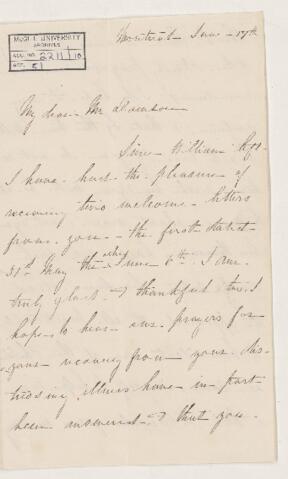 McGILL UNIVERSITY
ARCHIVES
ACC. NO. 2211/10
REF. 51
Montreal June 17th
My dear Mr Dawson
Since William left
I have had the pleasure of
receiving two welcome letters
from you - the first dated
31st May the other June 6th. I am
truly glad & thankful too. I
hope to hear our prayers for
your recovery from your dis-
tressing illness have in part
been answered & that you